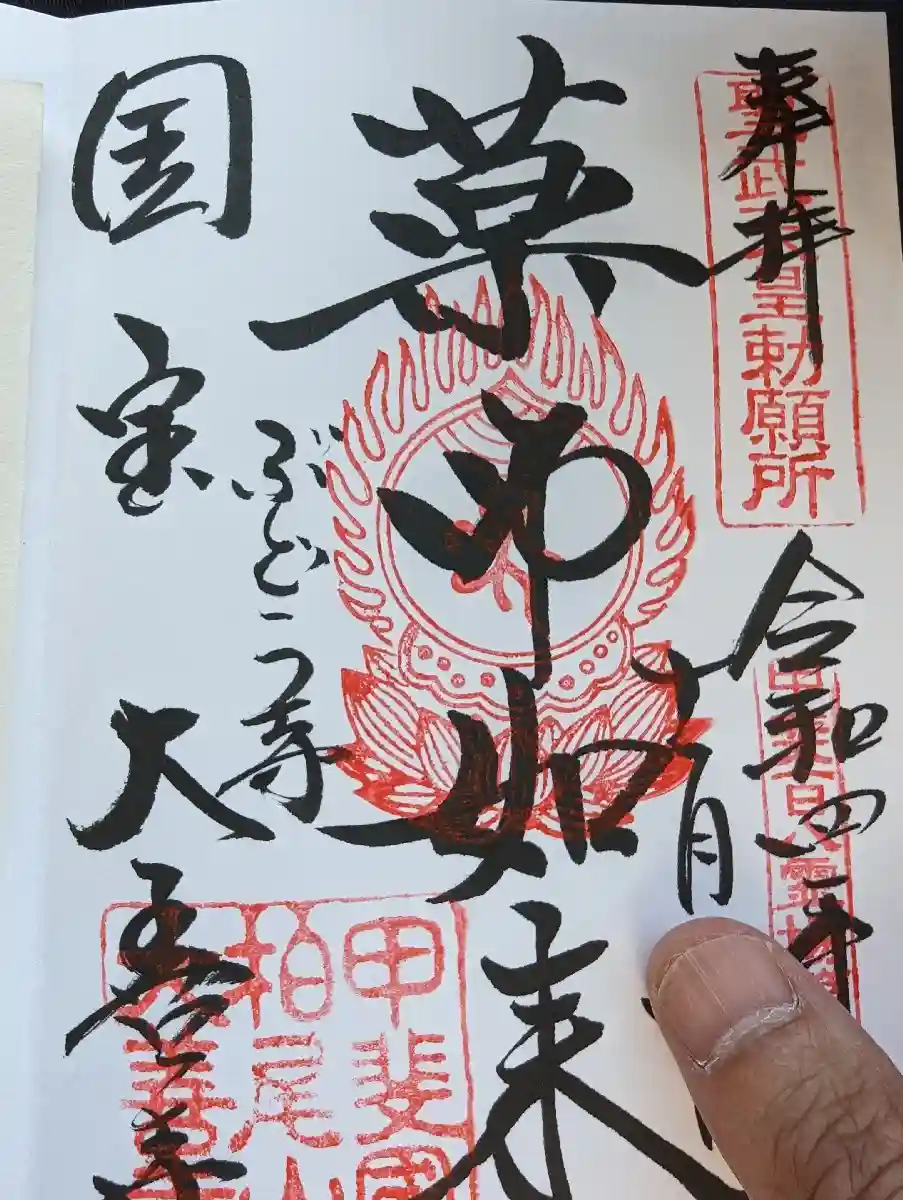 奉拝
聖武天皇勅願所
令和四年
十月
薬師如来
ぶどう寺
国宝
大善寺
甲斐國
柏尾山
大善